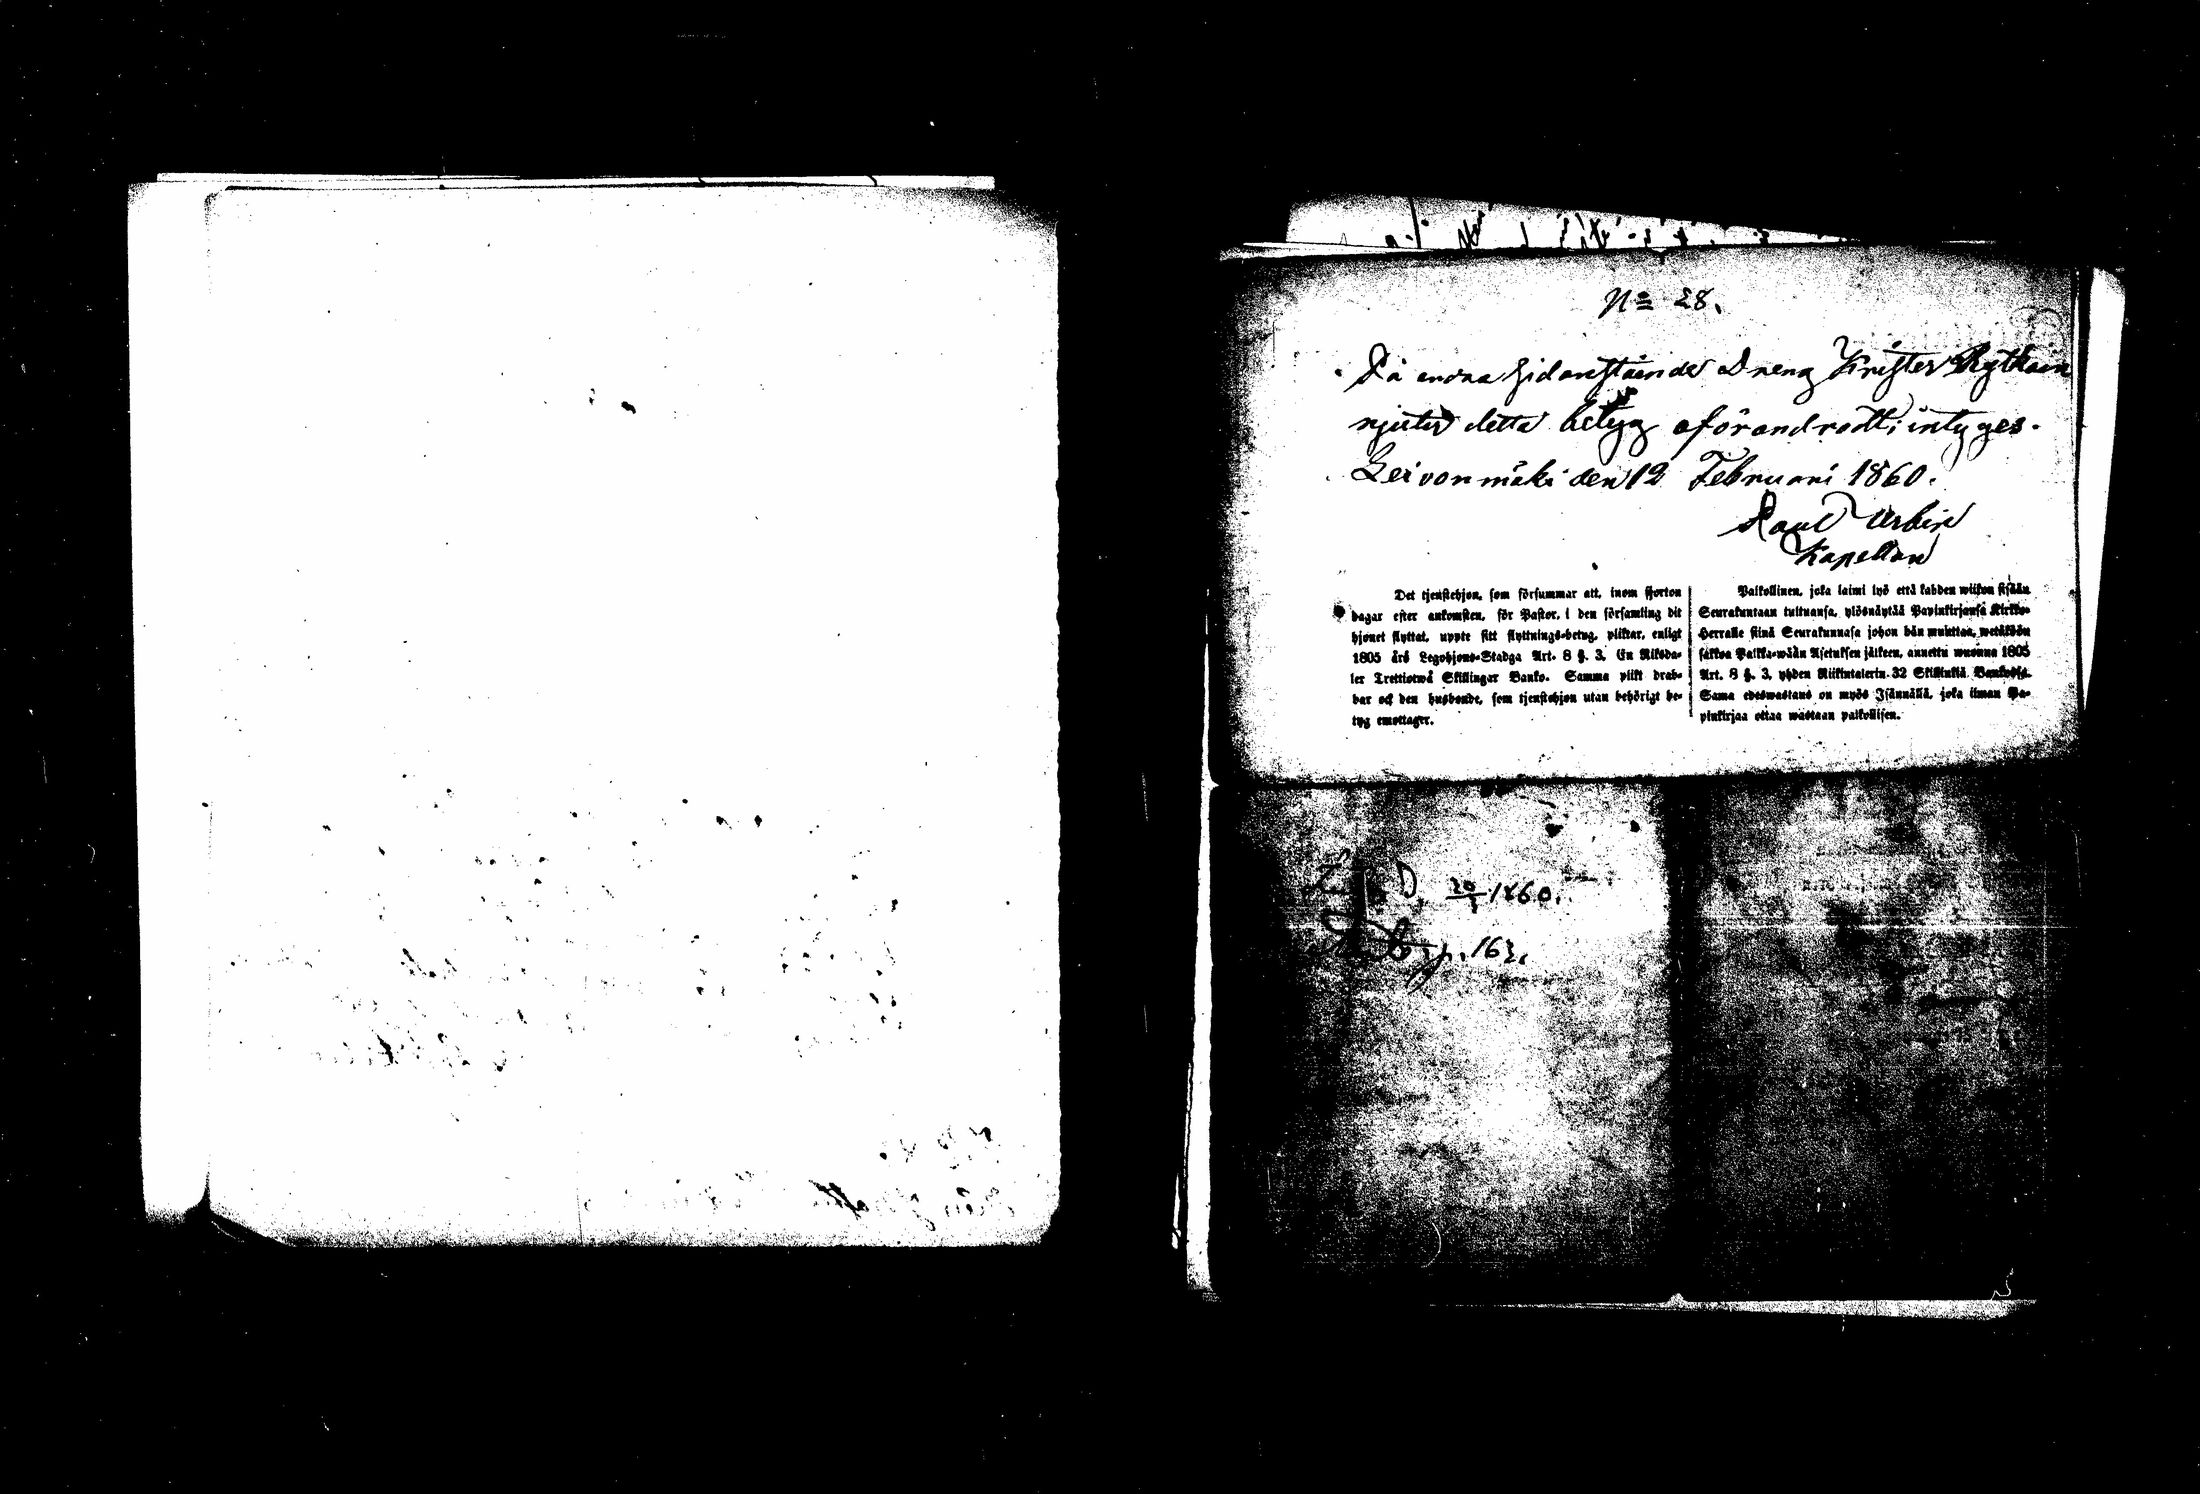 No 28.
På andra sidanstående Dreng Krister Rytkön
njuter detta betyg oförändradt; intyges.
Leivonmäki den 12 Februari 1860.
Paul Urbin
Kapellan
Det tjenstehjon, som försummar att, inom fjorton
dagar efter ankomsten, för Pastor, i den församling dit
hjonet flyttat, uppte sitt flyttnings-betyg, pliktar, enligt
1805 års Legohjons-Stadga Art. 8 §. 3. En Riksda-
ler Trettiotwå Skillinger Banko. Samma plikt drab-
bar ock den husbonde, som tjenstehjon utan behörigt be-
tyg emottager.
Palkollinen, joka laimi lyö että kahden wiikon sisään
Seurakuntaan tultuansa, ylösnäytää Papinkirjansa Kirkko-
Herralle siinä Seurakunnasa johon hän muuttaa, wetäköön
sakkoa Palkka-wään Asetuksen jälkeen, annettu wuonna 1805
Art. 8 §. 3, yhden Riikintalerin 32 Skillinkiä Bankossa.
Sama edeswastaus on myös Isännällä, joka ilman Pa-
pinkirjaa ottaa wastaan palkollisen.
D. 20/1 1860.
p. 163.